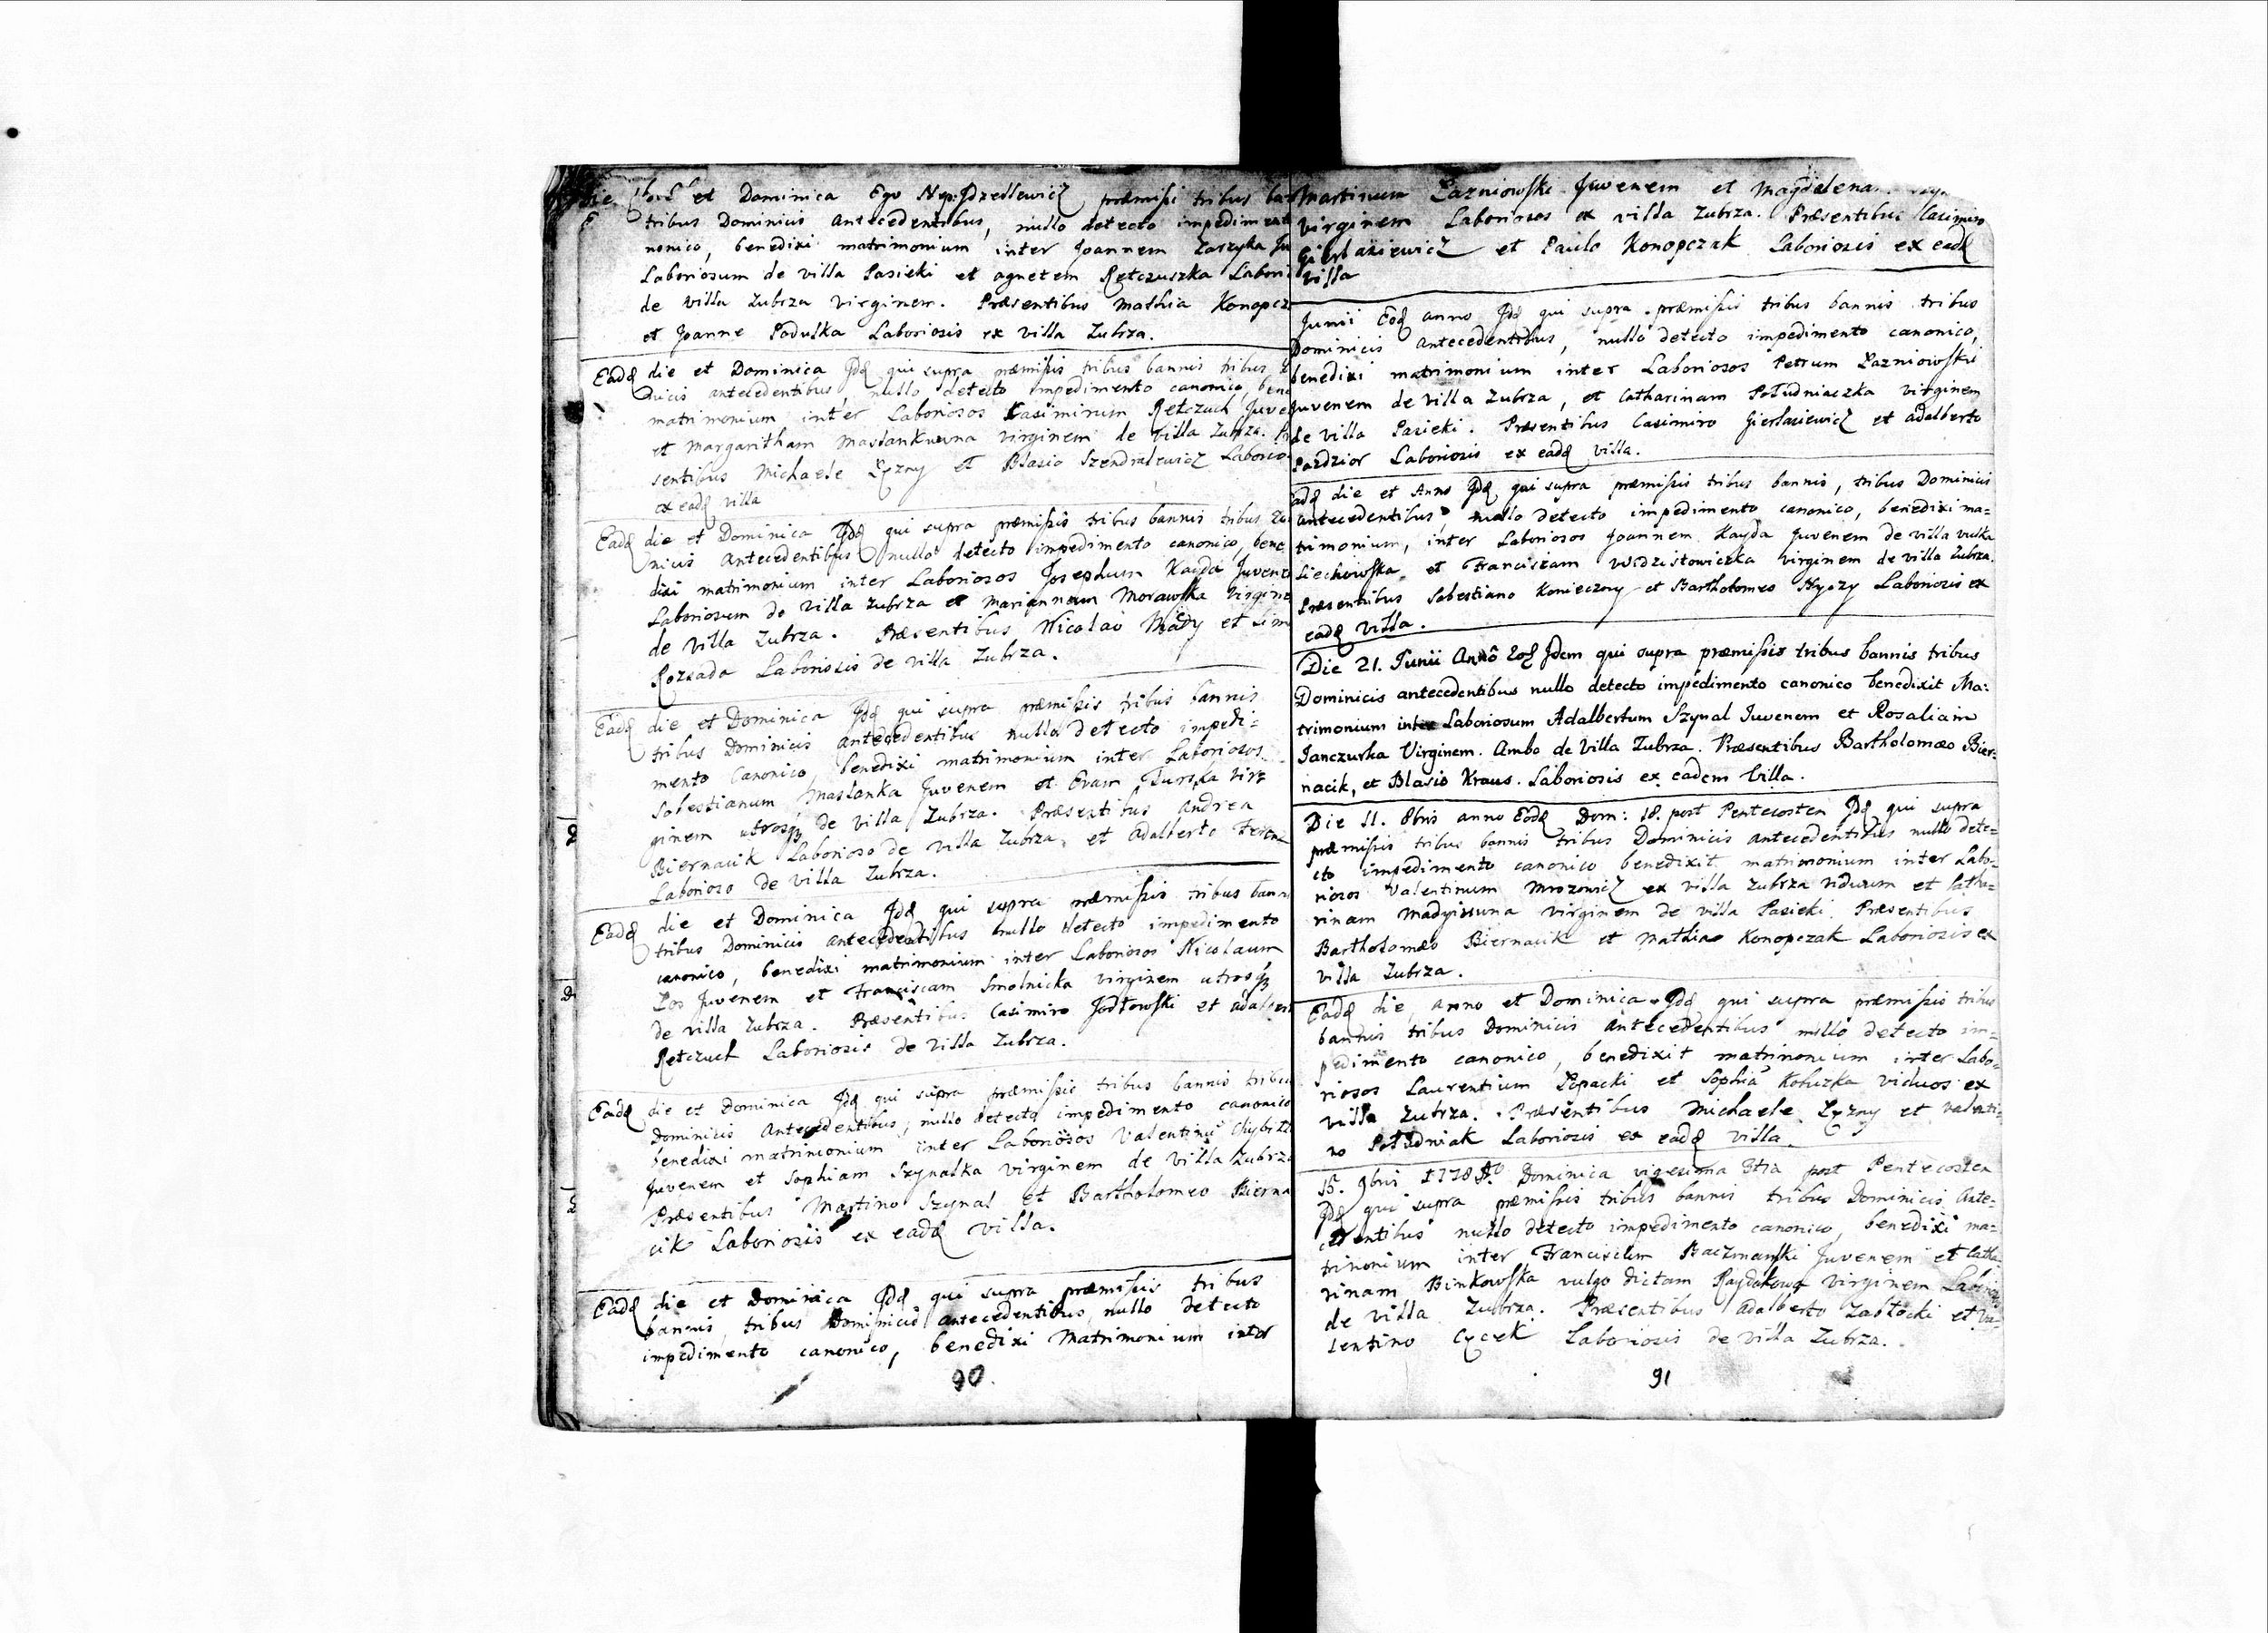 die et Dominica Ego præmissi tribus
tribus Dominicis Antecedentibus, nullo detecto impediment
nonico, benedixi matrimonium inter Joannem Zarzyka
Laboriosum de villa Pasieki et agnetem Rętczuszka Labori
de villa Zubrza virginem. Præsentibus Mathia Konopcz
et Joanne Paduszka Laboriosis ex villa Zubrza.
Eadē die et Dominica Jdē qui supra præmissis tribus bannis tribus
nicis antecedentibus, nullo detecto impedimento canonico, bene
matrimonium inter Laboriosos Casimirum Rętczuch Juve
et Margaritham Maslankuwna virginem de Villa Zubrza.
sentibus Michaele Łyzny et Blasio Szendralewicz Laborio
ex eadē villa
Eadē die et Dominica Jdē qui supra præmissis tribus bannis tribus
nicis Antecedentibus nullo detecto impedimento canonico, bene
dixi matrimonium inter Laboriosos Josephum Kayda Juvene
Laboriosum de Villa Zubrza et Mariannam Morawska Virgine
de villa Zubrza. Præsentibus Nicolao Mady et Sim
Rozsada Laboriosis de villa Zubrza.
Eadē die et Dominica Jdē qui supra præmissis tribus bannis
tribus Dominicis antecedentibus nullo detecto impedi=
mento Canonico, benedixi matrimonium inter Laboriosos
Sobestianum Maslanka Juvenem et Evam Zurska vir
ginem utrosq de villa Zubrza. Præsentibus Andrea
Biernacik Laborioso de villa Zubrza, et Adalberto
Laborioso de villa Zubrza.
Eadē die et Dominica Jdē qui supra præmissis tribus bann
tribus Dominicis antecedentibus nullo detecto impedimento
canonico, benedixi matrimonium inter Laboriosos Nicolaum
Łos Juvenem et Franciscam Smolnicka virginem utrosq
de villa Zubrza. Præsentibus Casimiro Jodłowski et adalbert
Rętczuch Laboriosis de villa Zubrza.
Eadē die et Dominica Jdē qui supra præmissis tribus bannis tribus
Dominicis Antecedentibus, nullo detecto impedimento canonico
benedixi matrimonium inter Laboriosos Valentinū
Juvenem et Sophiam Szynalka virginem de villa Zubrza
Præsentibus Martino Szynal et Bartholomeo Bierna
cik Laboriosis ex eadē villa.
Eadē die et Dominica Jdē qui supra præmissis tribus
bannis, tribus Dominicis antecedentibus, nullo detecto
impedimento canonico, benedixi Matrimonium inter
90.
Martinum Łazniowski Juvenem et Magdalena
virginem Laboriosos ex villa Zubrza. Præsentibus Casimiro
Gierlasiewicz et Paulo Konopczak Laboriosis ex eadē
villa
Junii Eodē anno Jdē qui supra præmissis tribus bannis tribus
Dominicis antecedentibus, nullo detecto impedimento canonico,
benedixi matrimonium inter Laboriosos Petrum Łazniowski
Juvenem de villa Zubrza, et Catharinam Południaczka virginem
de villa Pasieki. Præsentibus Casimiro Gierlasiewicz et adalberto
Pazdzior Laboriosis ex eadē villa.
adē die et Anno Jdē qui supra præmissis tribus bannis, tribus Dominicis
antecedentibus, nullo detecto impedimento canonico, benedixi ma=
trimonium, inter Laboriosos Joannem Kayda Juvenem de villa Vulka
Siechowska, et Franciscam virginem de villa Zubrza.
Præsentibus Sobestiano Konieczny et Bartholomeo Hyczy Laboriosis ex
eadē villa.
Die 21. Junii Annô Eodē Jdem qui supra præmissis tribus bannis tribus
Dominicis antecedentibus nullo detecto impedimento canonico benedixit Ma=
trimonium inter Laboriosum Adalbertum Szynal Juvenem et Rosaliam
Janczurka Virginem. Ambo de Villa Zubrza. Præsentibus Bartholomæo Bier=
nacik, et Blasio Kraus. Laboriosis ex eadem Villa.
Die 11. 8bris anno Eodē Dom: 18. post Pentecosten Jdē qui supra
præmissis tribus bannis tribus Dominicis antecedentibus nullo dete=
cto impedimento canonico benedixit matrimonium inter Labo=
riosos Valentinum Mrozowicz ex villa Zubrza viduum et Catha=
rinam virginem de villa Pasieki. Præsentibus
Bartholomæo Biernacik et Mathiae Konopczak Laboriosis ex
villa Zubrza.
Eadē die, anno et Dominica Jdē qui supra præmissis tribus
bannis tribus Dominicis antecedentibus nullo detecto im=
pedimento canonico, benedixit matrimonium inter Labo=
riosos Laurentium Popacki et Sophiā Kobuzka viduos ex
villa Zubrza. Præsentibus Michaele Łyzny et Valenti=
no Południak Laboriosis ex eadē villa.
15. 9bris 1778 Dominica vigesima 3tia post Pentecosten
Jdē qui supra præmissis tribus bannis tribus Dominicis Ante=
cedentibus nullo detecto impedimento canonico, benedixi ma=
trimonium inter Franciscum Baczmanski Juvenem et Catha
rinam Binkowska vulgo dictam virginem
de villa Zubrza. Præsentibus Adalberto Zabłocki et Va=
lentino Cycek Laboriosis de villa Zubrza.
91